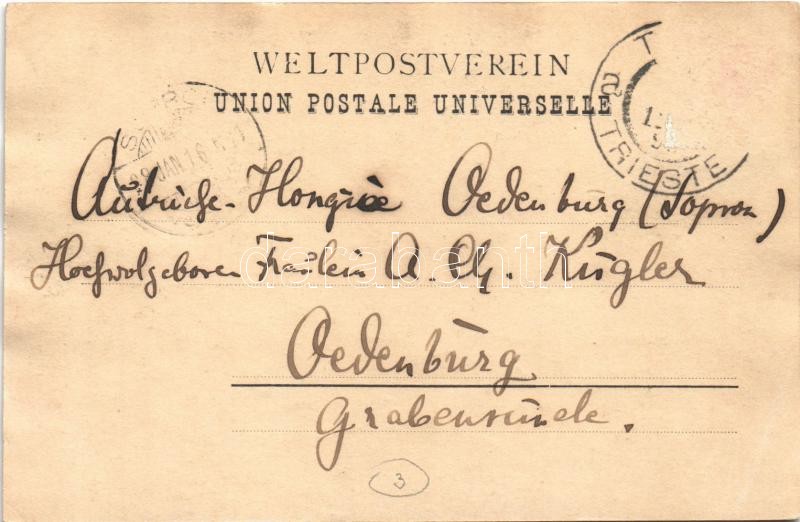 WELTPOSTVEREIN
UNION POSTALE UNIVERSELLE
T TRIESTE
JAN 16
Autriche-Hongrie Oedenburg (Sopron)
Hochwolgeboren Fräulein A. Kugler
darabanth
Oedenburg
Grabenrunde.
3